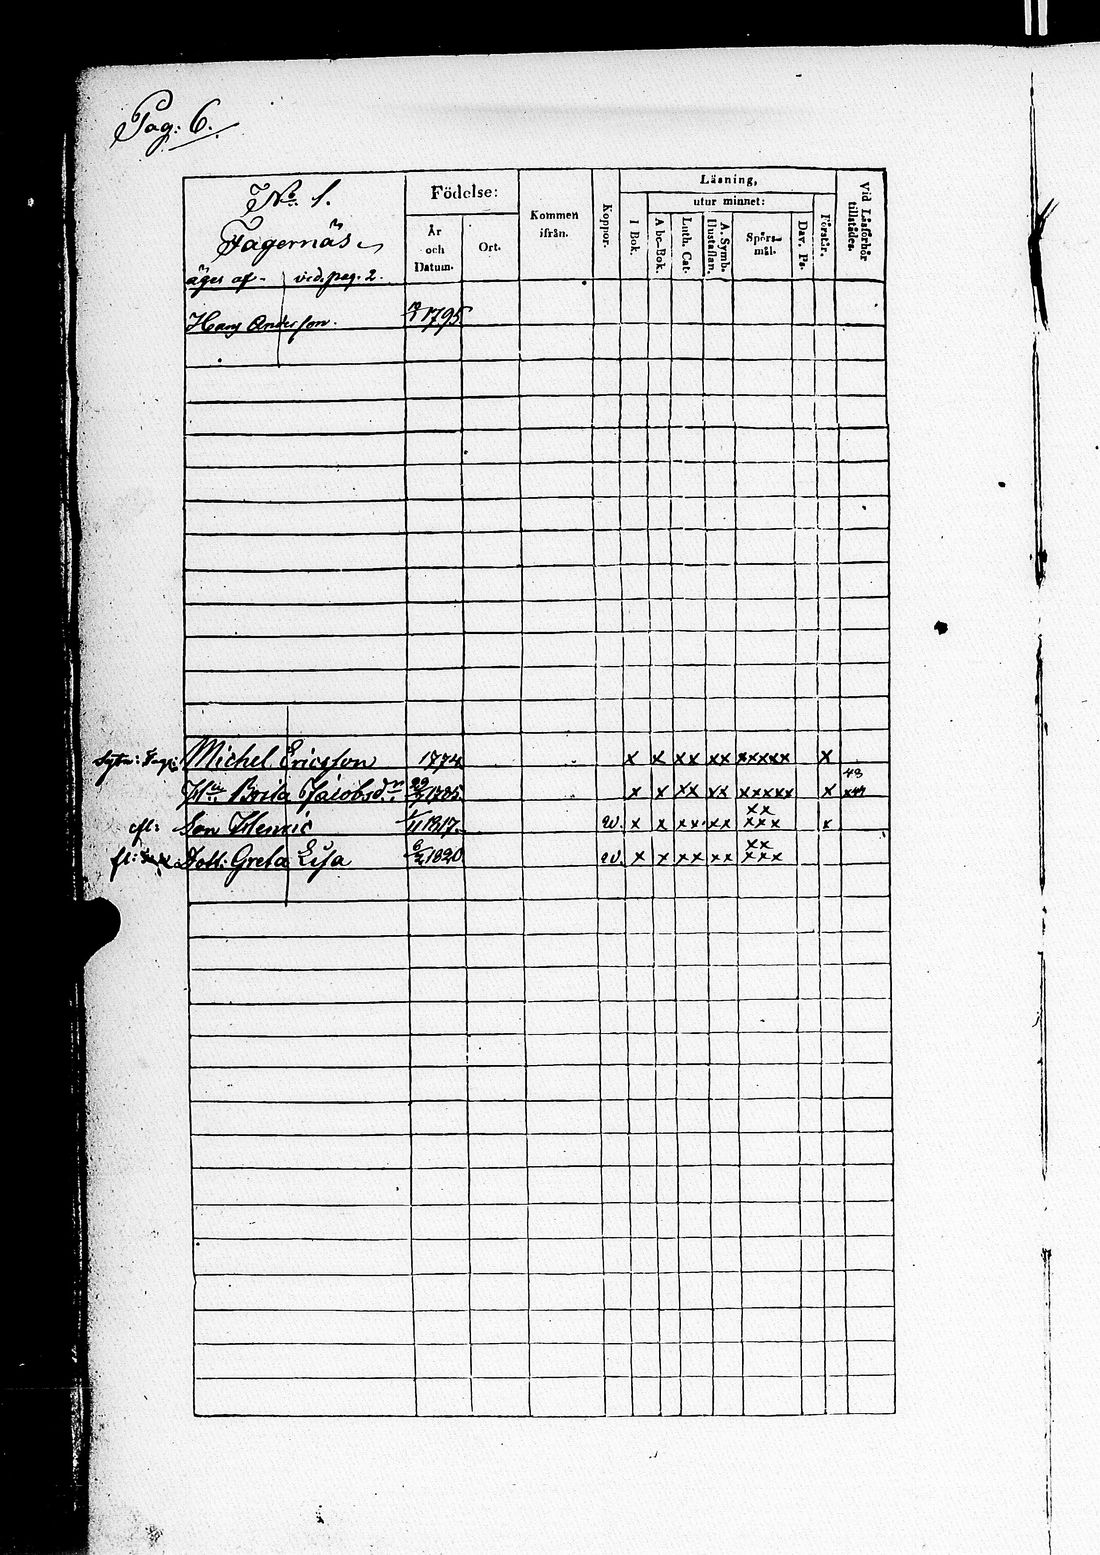 Pag: 6.
No. 1.
Fagernäs
äges af - vid. pag. 2.
Födelse:
År och Datum.
Ort.
Kommen ifrån.
Koppor.
Läsning,
utur minnet:
I Bok.
Abc-Bok.
Luth. Cat.
A. Symb. Hustaflan.
Spörs-mål.
Dav. Ps.
Förstår.
Vid Läsförhör tillstädes.
Hans Anderson. 1795
Michel Ericsson 1774 x x xx xx xxxxx x
H:u Brita Jacobsd:r 1785 x x xx xx xxxxx x 43
Son Henric 1/11 1817. w. x x xx xx xx xxx x
fl: Dott: Greta Lisa 1820 w. x x xx xx xx xxx